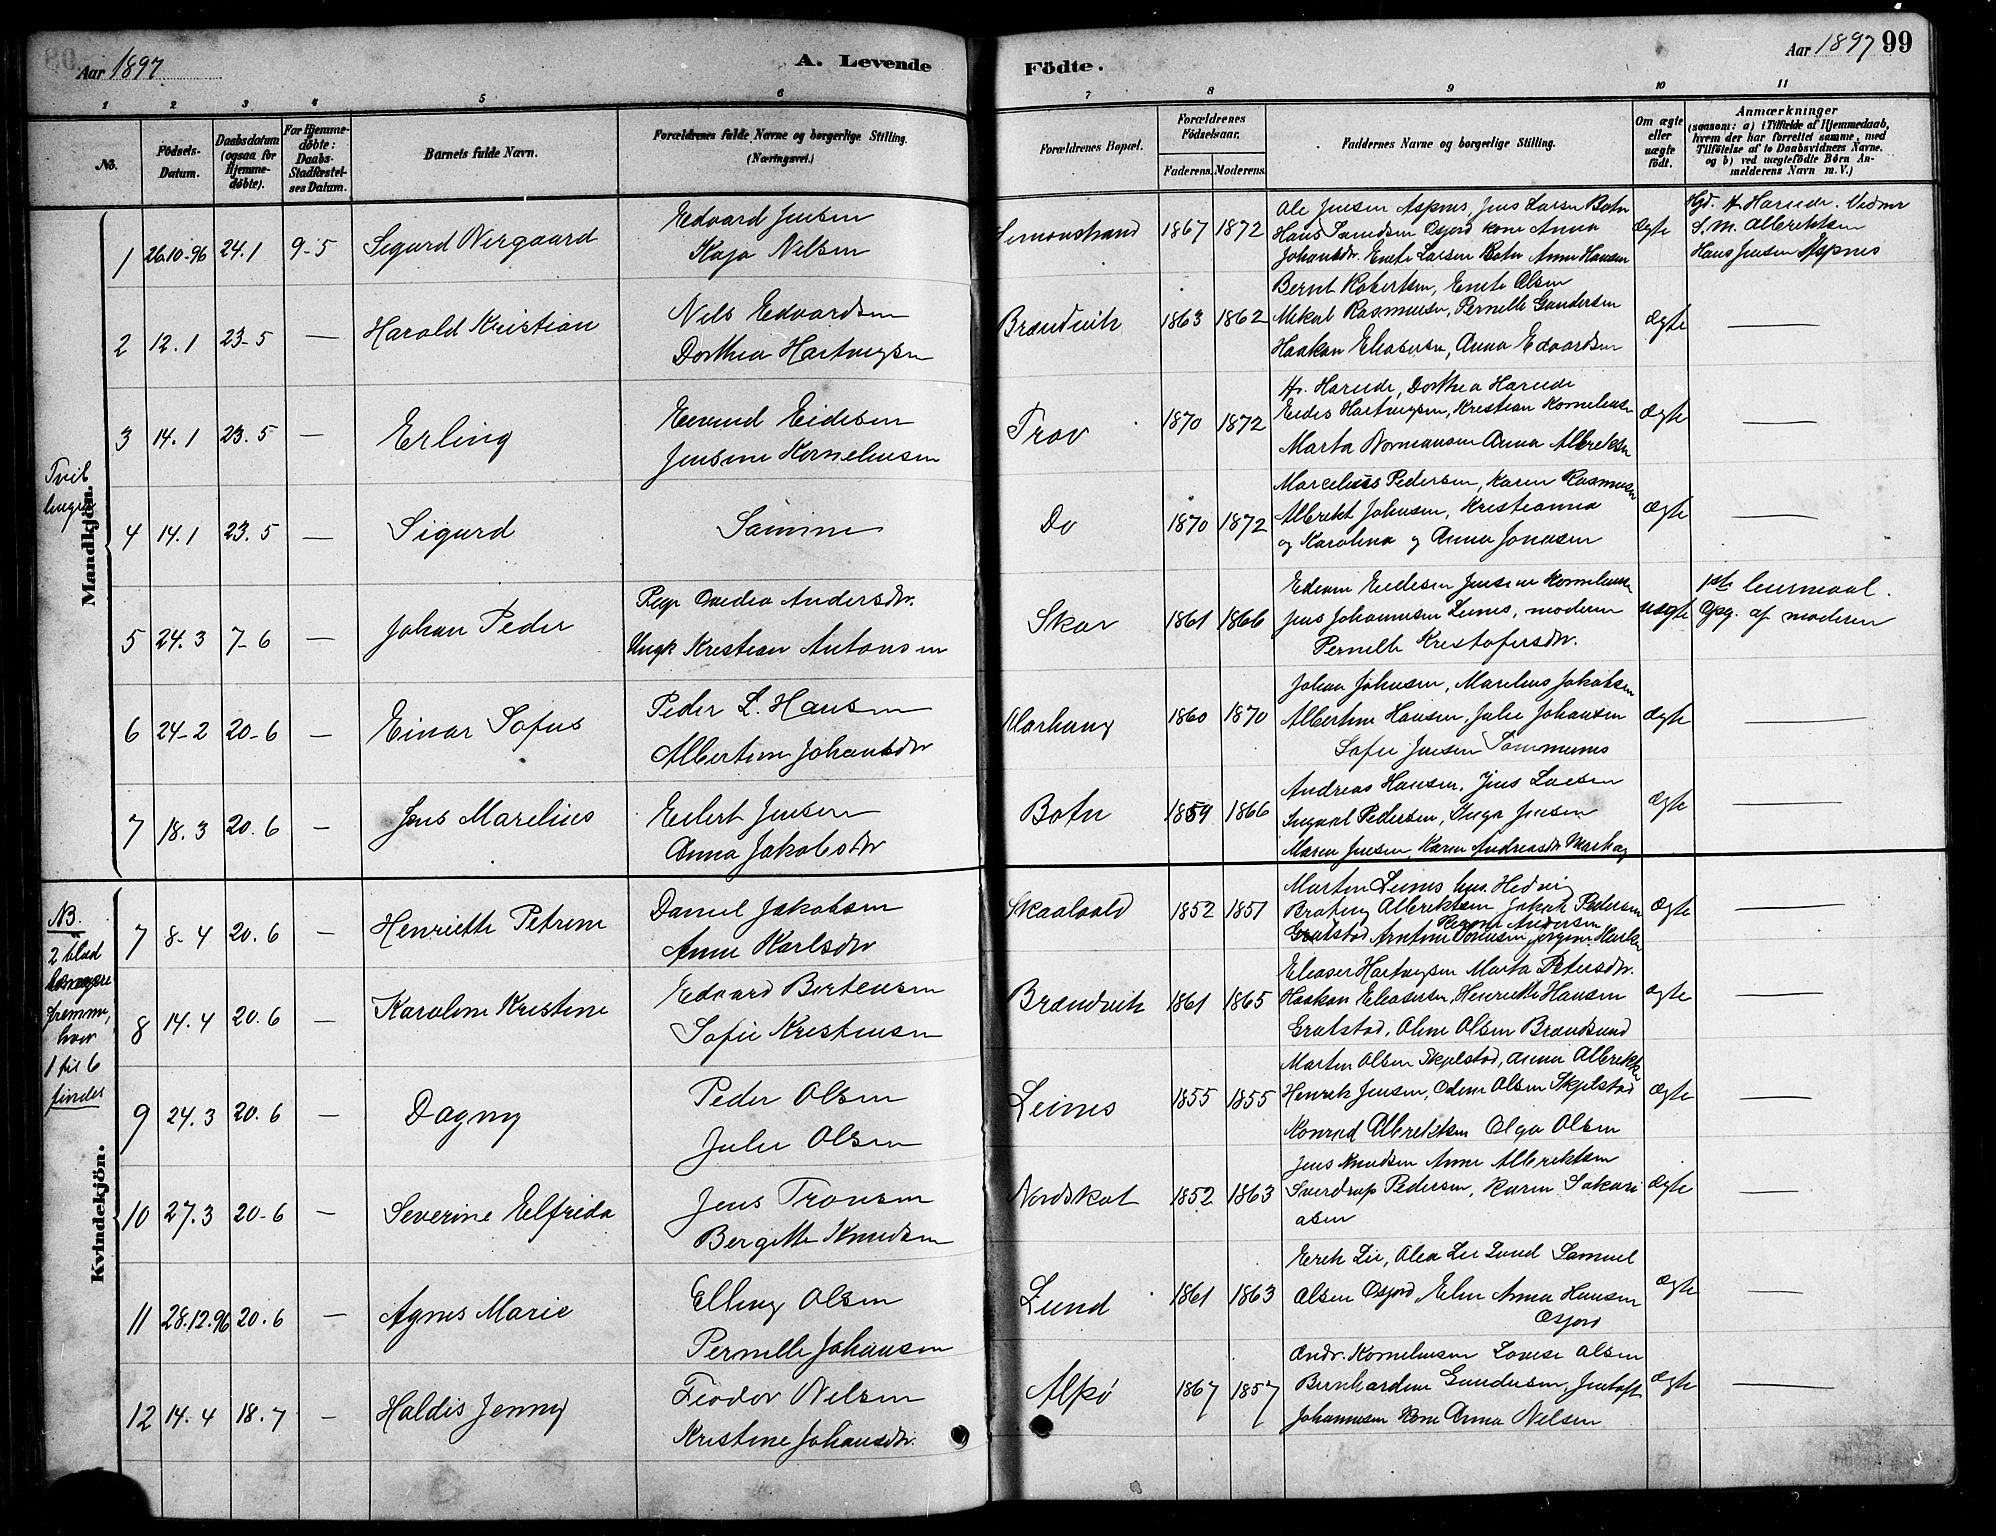 Aar 1897 A. Levende
Födte. Aar 1897 99
1 2 3 4 5 6
7 8 9 10 11
No. Födsels-Datum. Daabsdatum (ogsaa for Hjemmedøbte). For Hjemmedøbte: Daabs-Stadfæstelses Datum. Barnets fulde Navn. Forældrenes fulde Navne og borgerlige Stilling. (Næringsvei.)
Forældrenes Bopæl. Forældrenes Födselsaar. Faderens. Moderens. Faddernes Navne og borgerlige Stilling. Om ægte eller uægte födt. Anmærkninger (saasom: a) i Tilfælde af Hjemmedaab, hvem der har forrettet samme, med Tilföielse af to Daabsvidners Navne. og b) ved uægtefödte Börn Anmelderens Navn m. V.)
Mandkjön.
1 26.10-96 24.1 9-5 Sigurd Nergaard Edvard Jensen
Kaja Nilsen
Simonstrand 1867 1872 Ole Jensen Aspnes, Jens Larsen Botn
Hans Osfjord kone Anna
Johansdr. Larsen Botn Anna Hansen
Ægte Hgd. H. Vidner
S. M. Albriktsen
Hans Jensen Aspnes
2 12.1 23-5 — Harald Kristian Nils Edvardsen
Dorthea Hartvigsen
Brændvik 1863 1862 Bernt Robertsen, Olsen
Mikal Rasmussen, Pernille Gundersen
Haakon Eliasersen, Anna Edvardsen
Ægte —
Tvil
linger
3 14.1 23.5 — Erling Eidesen
Jensine Kornelius­sen
Trov 1870 1872 Dorthea
Hartvigsen, Kristian Korneliussen
Marta Normansen Anna Albriktsen
Ægte —
4 14.1 23.5 — Sigurd Samme
Do 1870 1872 Marcelius Pedersen, Karen Rasmussen
Albrikt Johnsen, Kristianna
og Karolina og Anna Jonasen
Ægte —
5 24.3 7-6 — Johan Peder Pige Ovedia Andersdr.
Ungk. Kristian Antonsen
Skar 1861 1866 Edvin Jensine Korneliussen
Jens Johannessen Leines, moderen
Pernille Kristofersdr.
Uægte 1ste leiermaal.
Opg. af moderen
6 24-2 20-6 — Einar Sofus Peder L. Hansen
Albertine Johansdr
Marhaug 1860 1870 Johan Johnsen, Marelius Jakobsen
Albertine Hansen, Julie Johansen
Sofie Jensen
Ægte —
7 18.3 20.6 — Jens Marelius Eilert Jensen
Anna Jakobsdr
Botn 1859 1866 Andreas Hansen, Jens Larsen
Pedersen, Inga Jensen
Maren Jensen, Karen Andreasdr
Ægte —
Kvindekjön.
NB.
2 blad
længere
fremme,
hvor
1 til 6
findes
7 8-4 20.6 — Henriette Petrine Daniel Jakobsen
Anne Karlsdr
Skaalvold 1852 1851 Martin Leines hus. Hedvig
Albriktsen Jakob Pedersen
Andersen
Grøtstad Arntine
Ægte —
8 14.4 20.6 — Karoline Kristine Edvard Bertensen
Sofie Kristensen
Brændvik 1861 1865 Eliaser Hartvigsen Marta Petersdr.
Haakon Eliasersen, Henrikke Hansen
Grøtstad, Oline Olsen Brandsund
Ægte —
9 24.3 20.6 — Dagny Peder Olsen
Julie Olsen
Leines 1855 1855 Martin Olsen Skjelstad, Anna Albrikts
Henrik Jensen, Odine Olsen Skjelstad
Konrad Albriktsen Olga Olsen
Ægte —
10 27.3 20-6 — Severine Elfrida Jens Tronsen
Bergitte Knudsen
Nordskot 1852 1863 Jens Knudsen Anne Albriktsen
Sverdrup Pedersen, Karen Sakari
asen
Ægte —
11 28.12.96 20.6 — Agnes Marie Elling Olsen
Pernille Johansen
Lund 1861 1863 Erik Lie, Olea Lie Lund Samuel
Olsen Osfjord, Elen Anna Hansen
Osfjord
Ægte —
12 14.4 18.7 — Haldis Jenny Feodor Nilsen
Kristine Johansdr.
Alpø 1867 1857 Andr. Korneliussen Lovise Olsen
Bernhardine Gundersen, Jentoft
Johannesen kone Anna Nilsen
Ægte —